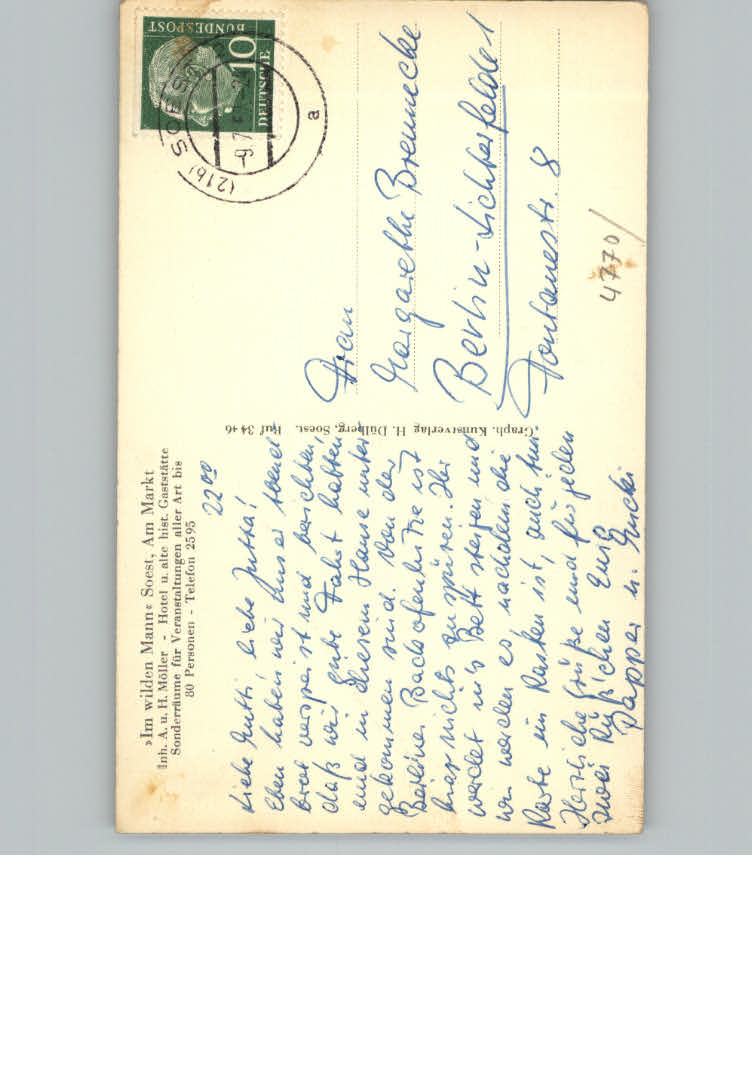 »Im wilden Mann« Soest, Am Markt
Inh. A. u. H. Möller - Hotel u. alte hist. Gaststätte
Sonderräume für Veranstaltungen aller Art bis
80 Personen - Telefon 2595
22 00
Liebe Mutti, liebe Jutta!
Eben haben wir unser Abend-
brot verspeist und berichten,
daß wir gute Fahrt hatten
und in diesem Hause unter-
gekommen sind. Von der
Berliner Backofenhitze ist
hier nichts zu spüren. Ihr
werdet ins Bett steigen und
wir werden es, nachdem die
Karte im Kasten ist, auch tun.
Herzliche Grüße und für jeden
zwei Küßchen Euch
Pappa u.
Graph. Kunstverlag H. Dülberg, Soest. Ruf 3446
DEUTSCHE
BUNDESPOST
10
(21b) SOEST
-9.7.
a
Frau
Margarethe Brennecke
Berlin-Lichterfelde 1
Fontanestr. 8
4770/